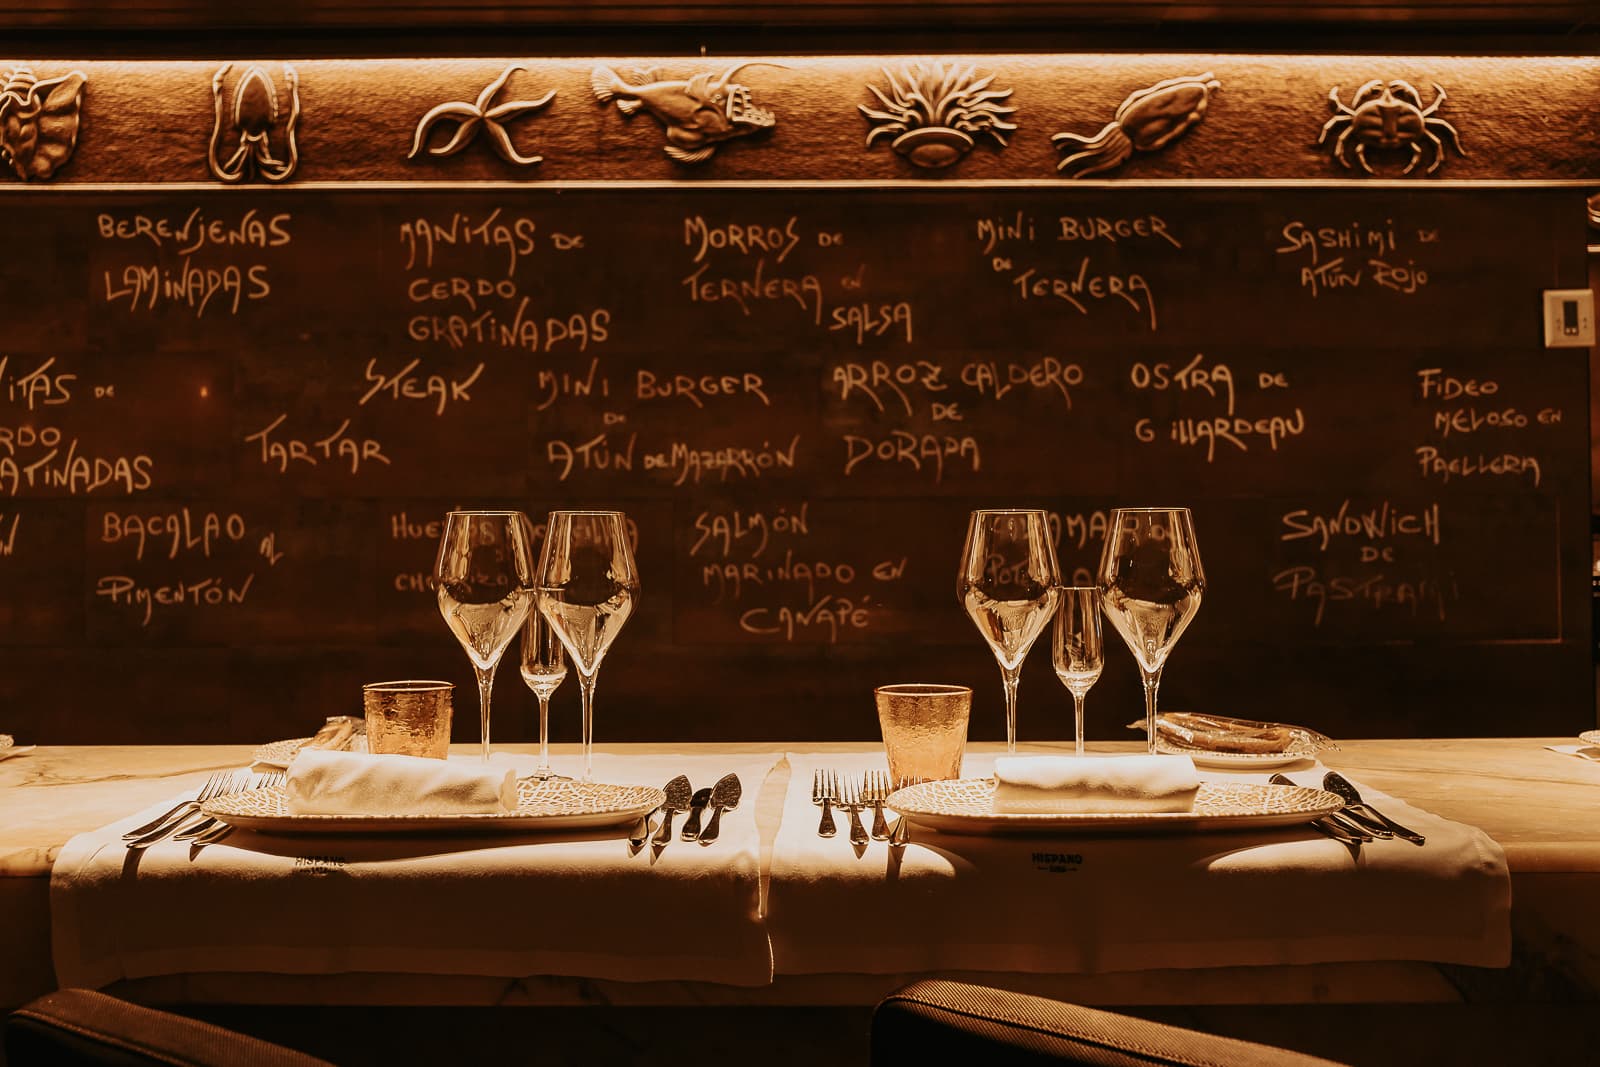 BERENJENAS
LAMINADAS
MANITAS DE
CERDO
GRATINADAS
MORROS DE
TERNERA EN
SALSA
MINI BURGER
DE
TERNERA
SASHIMI DE
ATÚN ROJO
ITAS DE
RDO
ATINADAS
STEAK
TARTAR
MINI BURGER
DE
ATÚN DE MAZARRÓN
ARROZ CALDERO
DE
DORADA
OSTRA DE
GILLARDEAU
FIDEO
MELOSO EN
PAELLERA
BACALAO AL
PIMENTÓN
SALMÓN
MARINADO EN
CANAPÉ
SANDWICH
DE
PASTRAMI
HISPANO
HISPANO